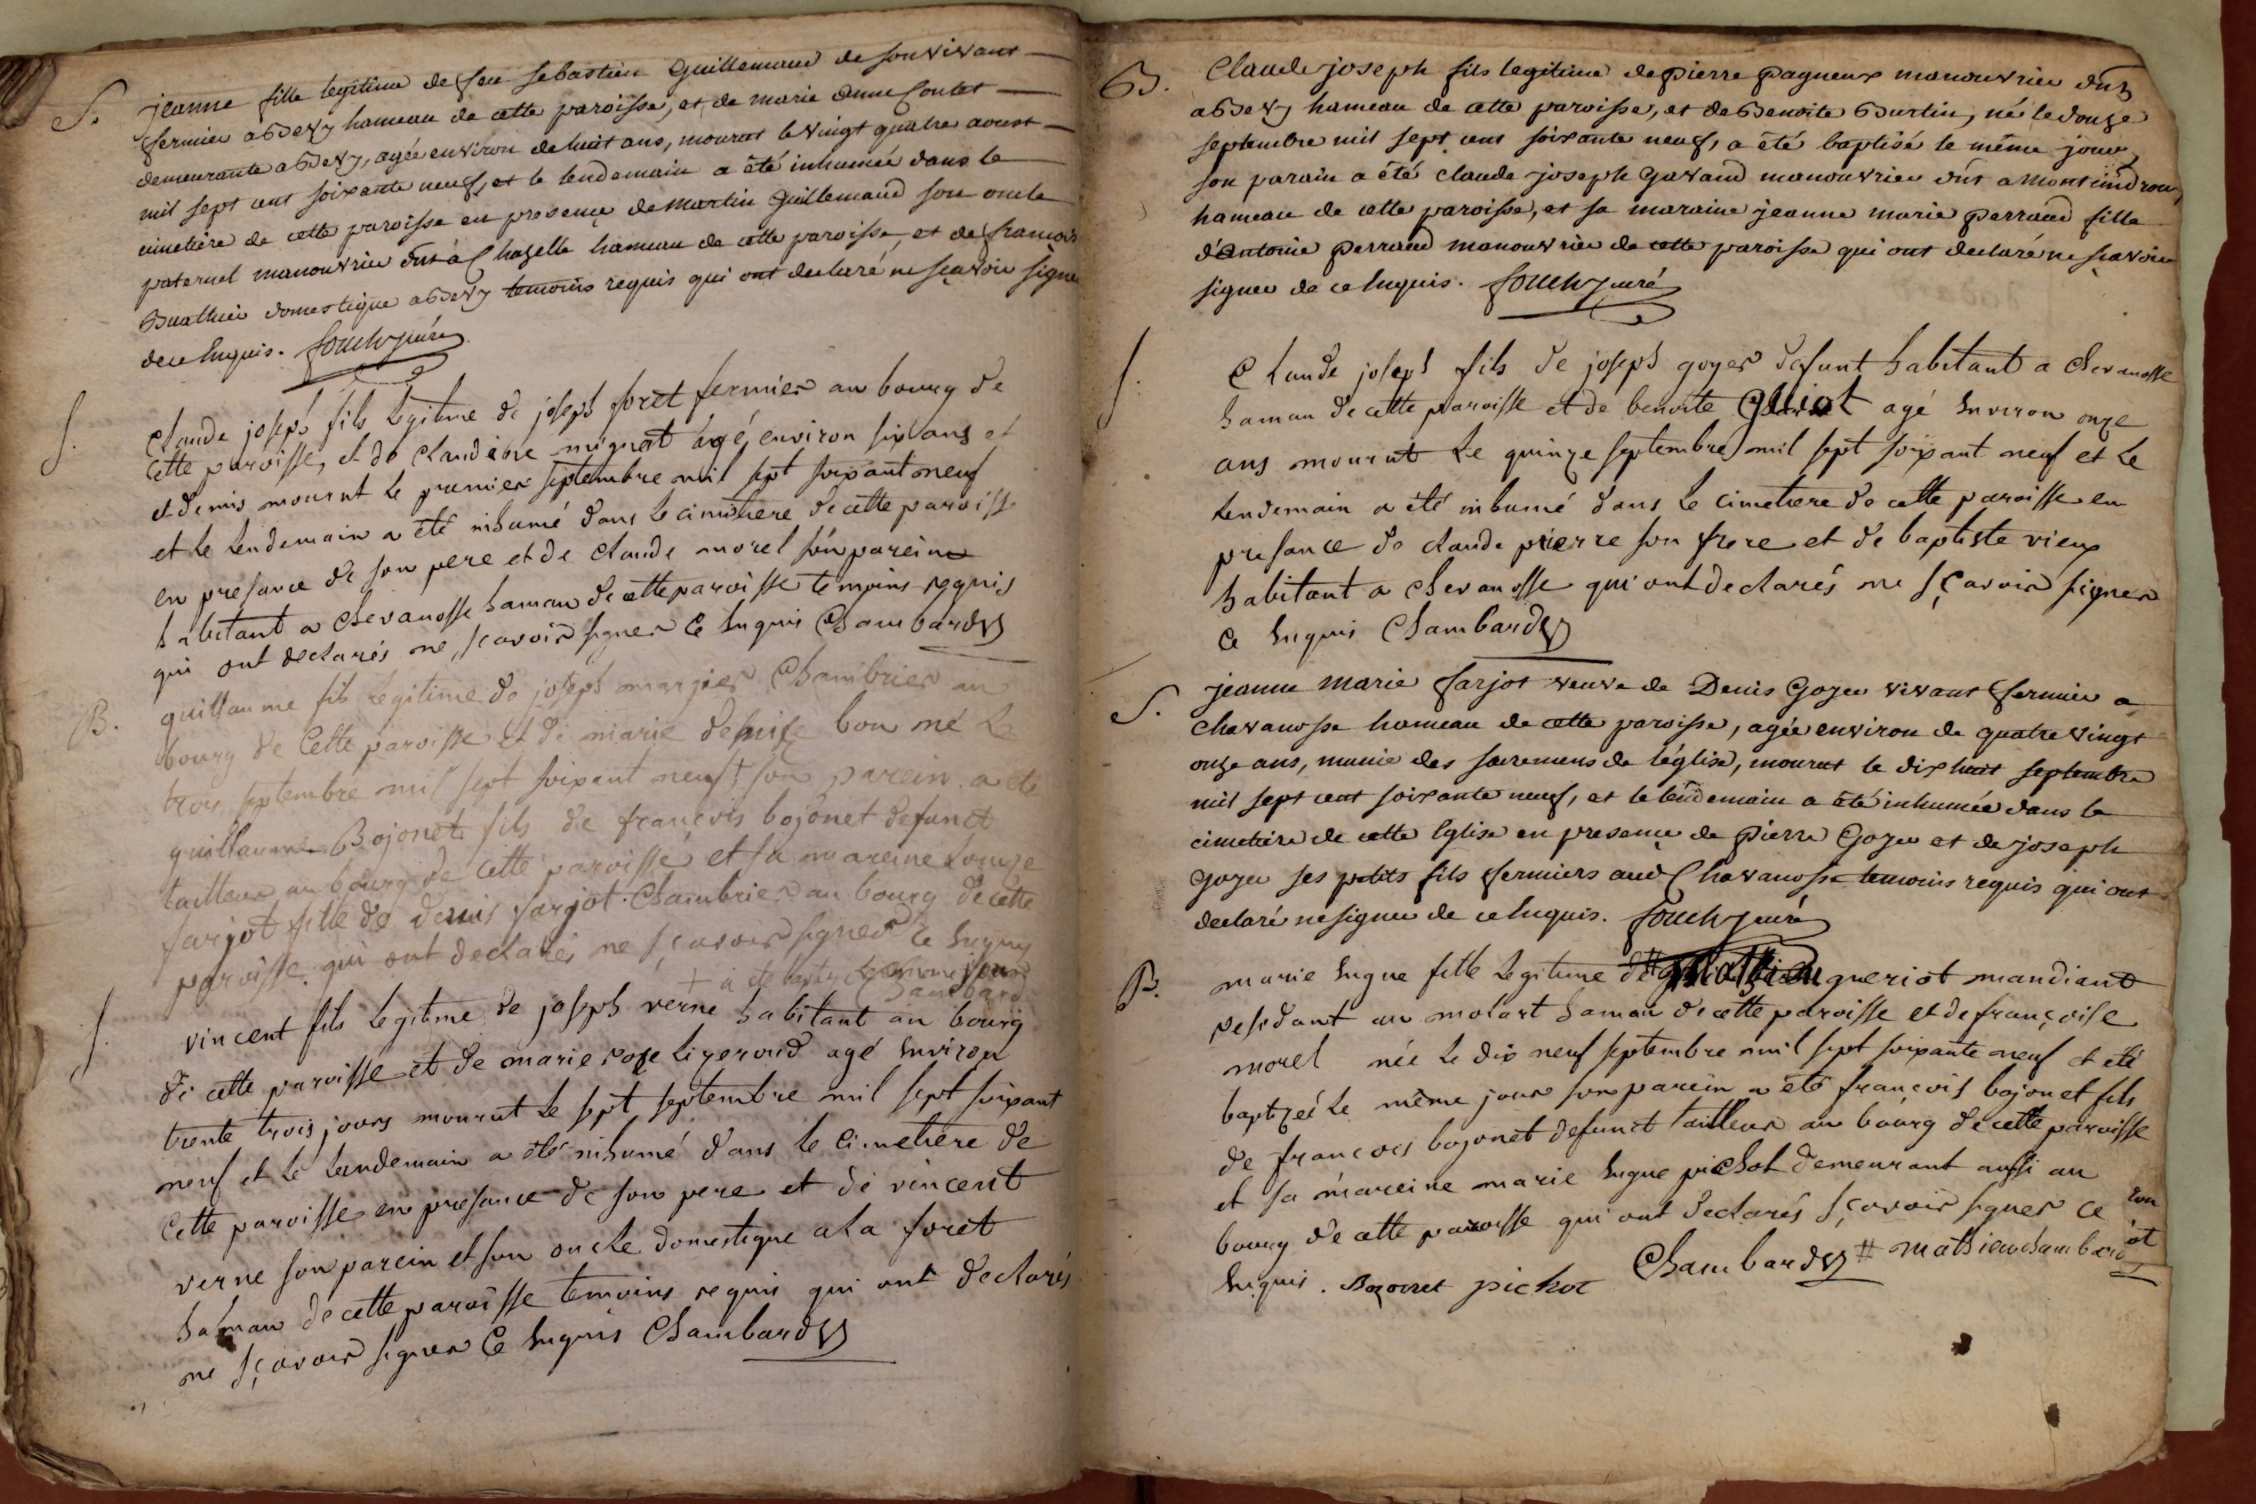 S. jeanne fille legitime de feu sebastien Guillemaud de son vivant
fermier a Bevy hameau de cette paroisse, et de marie anne Contet
demeurante a Bevy, agée environ de huit ans, mourut le vingt quatre aoust
mil sept cent soixante neuf, et le lendemain a été inhumée dans le
cimetiere de cette paroisse en presence de martin Guillemaud son oncle
paternel manouvrier dt à Chazelle hameau de cette paroisse, et de francois
Buathier domestique a Bevy temoins requis qui ont declaré ne sçavoir signer
de ce Enquis. fouchy curé
S. Claude joseph fils legitime de joseph foret fermier au bourg de
cette paroisse, et de Claudine mignat agé environ six ans et
et demis mourut le premier septembre mil sept soixant neuf
et le lendemain a été inhumé dans le cimetiere de cette paroisse
en presance de son pere et de Claude morel son parein
habitant a Chevanosse hamau de cette paroisse temoins requis
qui ont declarés ne sçavoir signer Ce Enquis Chambard
B. guillaume fils legitime de joseph mazjer Chambrier au
bourg de Cette paroisse et de marie denise bon né le
trois septembre mil sept soixant neuf + son parein a été
guillaume Bojonet fils de françois bojonet defunct
tailleur au bourg de cette paroisse et sa mareine Louise
farjot fille de denis farjot Chambrier au bourg de cette
paroisse qui ont declarés ne sçavoir signer Ce Enquis
+ a été baptizé le meme jour
Chambard
S. vincent fils legitime de joseph verne habitant au bourg
de cette paroisse et de marie roze lizeroud agé Environ
trente trois jours mourut le sept septembre mil sept soixant
neuf et le lendemain a été inhumé dans le cimetiere de
Cette paroisse en presance de son pere et de vincent
verne son parein et son oncle domestique a la foret
hamau de cette paroisse temoins requis qui ont declarés
ne sçavoir signer Ce Enquis Chambard
B. Claude joseph fils legitime de pierre pagneux manouvrier dt
a Bevy hameau de cette paroisse, et de Benoite Burtin, né le douze
septembre mil sept cent soixante neuf, a été baptisé le même jour,
son parain a été Claude joseph Gavand manouvrier dt a Montcindroux,
hameau de cette paroisse, et sa maraine jeanne marie perraud fille
d'Antoine perraud manouvrier de cette paroisse qui ont declaré ne sçavoir
signer de ce Enquis. fouchy curé
S. Claude joseph fils de joseph goyer defunt habitant a Chevanosse
hamau de cette paroisse et de benoite gilliot agé Environ onze
ans mourut le quinze septembre mil sept soixant neuf et le
lendemain a été inhumé dans le cimetiere de cette paroisse en
presance de claude pierre son frere et de baptiste vieux
habitant a Chevanosse qui ont declarés ne sçavoir signer
Ce Enquis Chambard
S. jeanne Marie farjot veuve de Denis Goyer vivant fermier a
Chavanosse hameau de cette paroisse, agée environ de quatre vingt
onze ans, munie des sacremens de l'église, mourut le dix huit septembre
mil sept cent soixante neuf, et le lendemain a été inhumée dans le
cimetiere de cette Eglise en presence de Pierre Goyer et de joseph
goyer ses petits fils fermiers aud Chavanosse temoins requis qui ont
declaré ne signer de ce Enquis. fouchy curé
B. marie Hugue fille legitime de # gueriot mandiant
residant au molart hamau de cette paroisse et de françoise
morel née le dix neuf septembre mil sept soixante neuf et été
baptizeé le même jour son parein a été françois bojonet fils
de françois bojonet defunct tailleur au bourg de cette paroisse
et sa mareine marie hugue pichot demeurant aussi au
bourg de cette paroisse qui ont declarés sçavoir signer Ce
Enquis. Bozonet pichot Chambard # mathieu chambard